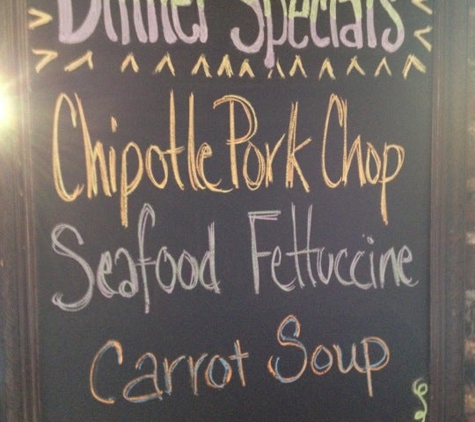 Dinner Specials
Chipotle Pork Chop
Seafood Fettuccine
Carrot Soup